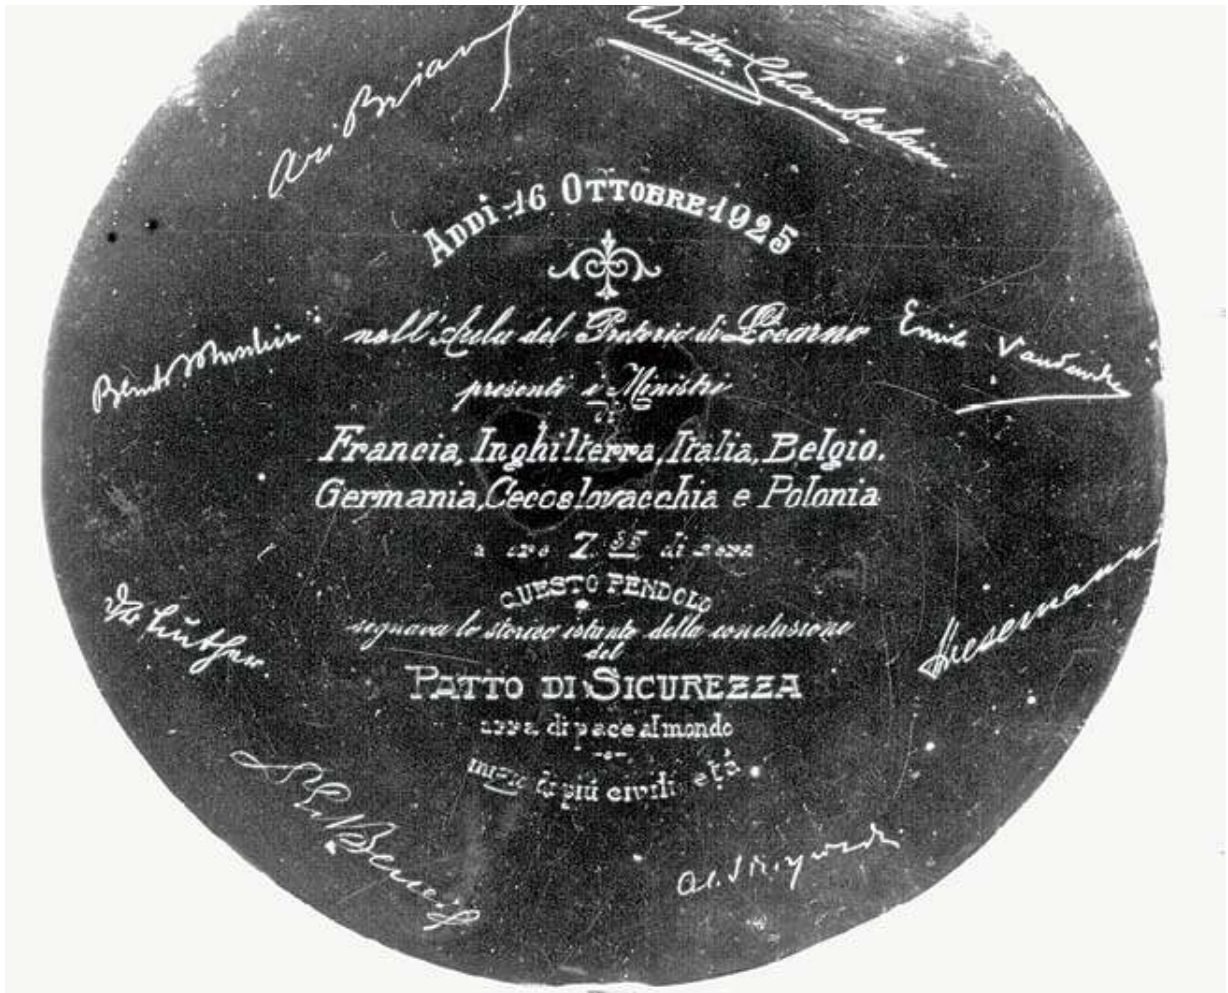 Ari Briand
Austen Chamberlain
ADDI 16 OTTOBRE 1925
nell'Aula del Pretorio di Locarno
Emile Vandervelde
presenti i Ministri
di
Francia, Inghilterra, Italia, Belgio.
Germania, Cecoslovacchia e Polonia
a ore 7.55 di sera
QUESTO PENDOLO
segnava lo storico istante della conclusione
del
PATTO DI SICUREZZA
arra di pace al mondo
inizio di più civili età
Dr Luther
Stresemann
Benes